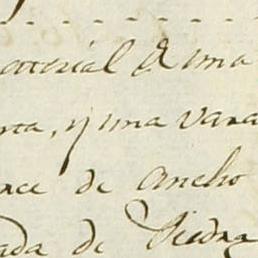 material de una
rta, y una vara
nce de Ancho
ada de Piedra